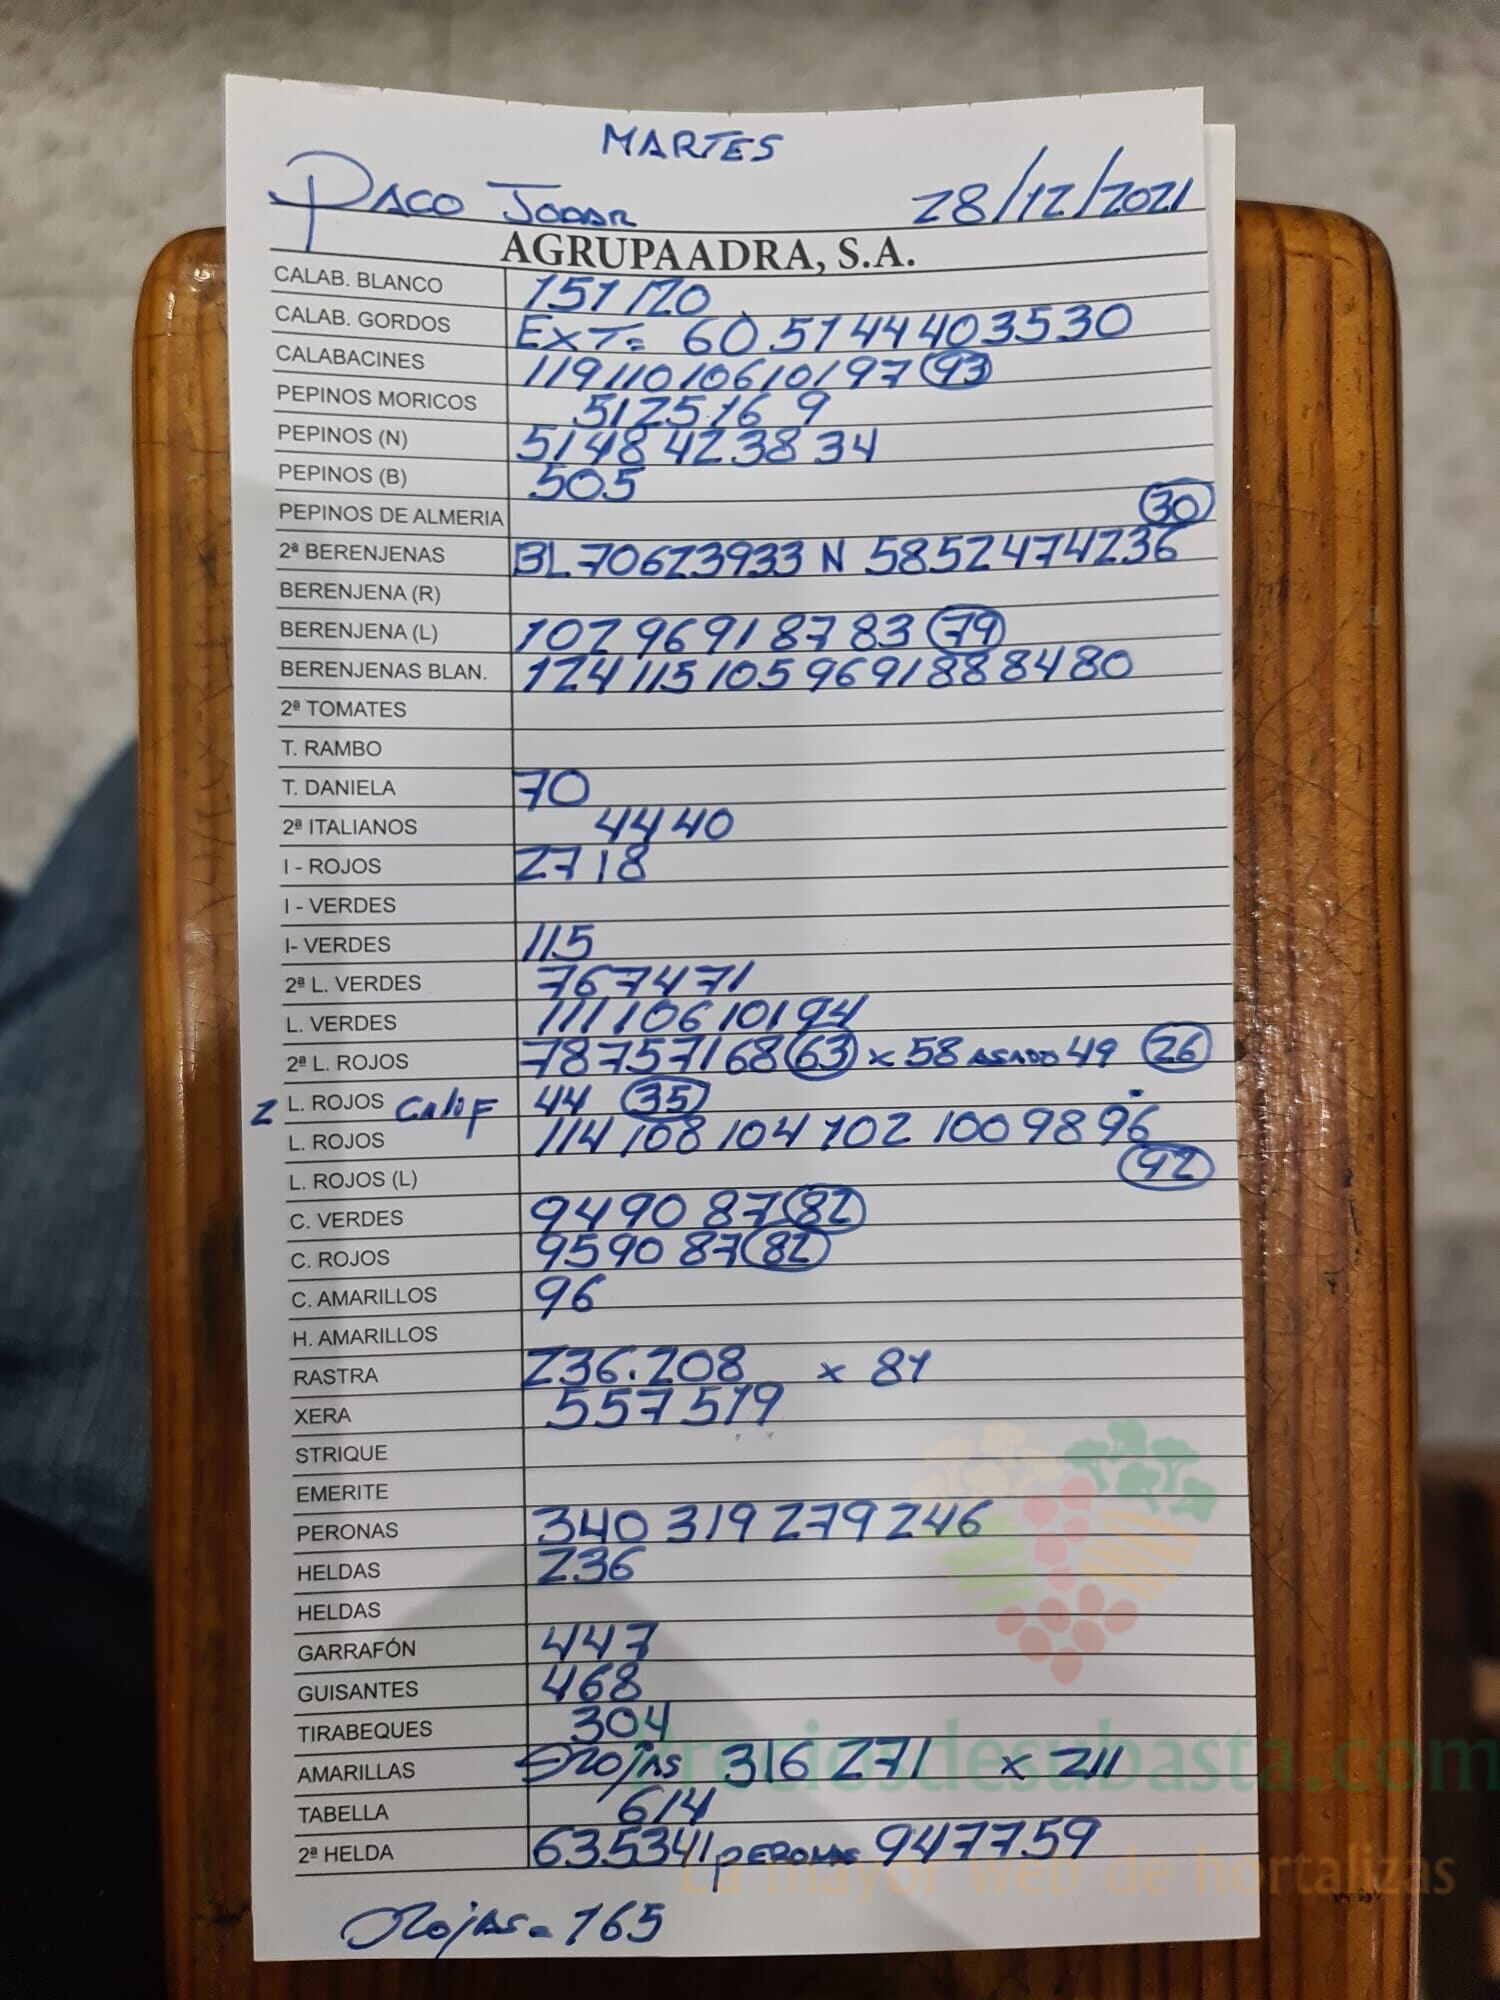 MARTES
PACO JODAR 28/12/2021
AGRUPAADRA, S.A.
CALAB. BLANCO 151 120
CALAB. GORDOS EXT= 60 51 44 40 35 30
CALABACINES 119 110 106 101 97 93
PEPINOS MORICOS 51 25 16 9
PEPINOS (N) 51 48 42 38 34
PEPINOS (B) 50.5
PEPINOS DE ALMERIA 30
2ª BERENJENAS BL 70 62 39 33 N 58 52 47 42 36
BERENJENA (R)
BERENJENA (L) 102 96 91 87 83 79
BERENJENAS BLAN. 124 115 105 96 91 88 84 80
2ª TOMATES
T. RAMBO
T. DANIELA 70
2ª ITALIANOS 44 40
I - ROJOS 27 18
I - VERDES
I- VERDES 115
2ª L. VERDES 76 74 71
L. VERDES 111 106 101 94
2ª L. ROJOS 78 75 71 68 63 x 58 ASADO 49 26
2 L. ROJOS Calif 44 35
L. ROJOS 114 108 104 102 100 98 96
L. ROJOS (L) 92
C. VERDES 94 90 87 82
C. ROJOS 95 90 87 82
C. AMARILLOS 96
H. AMARILLOS
RASTRA 236.208 x 81
XERA 557 519
STRIQUE
EMERITE
PERONAS 340 319 279 246
HELDAS 236
HELDAS
GARRAFÓN 447
GUISANTES 468
TIRABEQUES 304
AMARILLAS Rojas 316 271 x 211
TABELLA 614
2ª HELDA 63 53 41 PERONAS 94 77 59
Rojas= 165
Preciosdesubasta.com
La mayor web de hortalizas